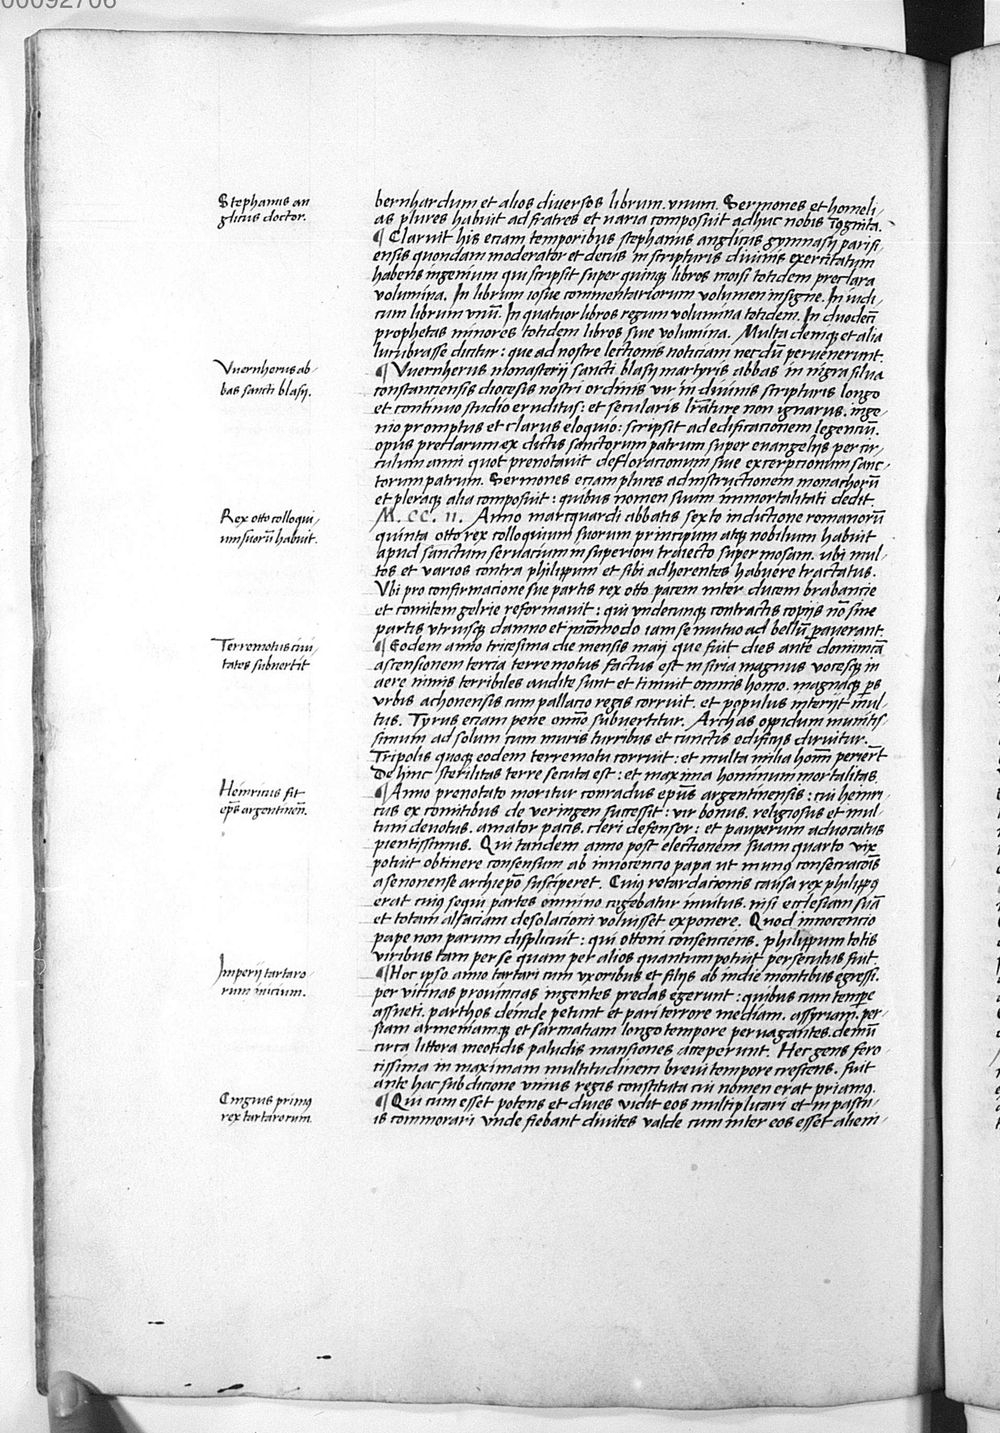 00092706
Stephanus an
glicus doctor.
bernhardum et alios diuersos librum vnum. Sermones et homeli-
as plures habuit ad fratres et uaria composuit adhuc nobis īcognita.
¶ Claruit his eciam temporibus stephanus anglicus gymnasij parisi-
ensis quondam moderator et decus in scripturis diuinis exercitatum
habens ingenium qui scripsit super quinq libros moisi totidem preclara
volumina. In librum iosue commentariorum volumen insigne. In iudi-
cum librum vnū. In quatuor libros regum volumina totidem. In duodecī
prophetas minores totidem libros siue volumina. Multa deniq et alia
lucubrasse dicitur: que ad nostre lectionis noticiam necdū peruenerunt.
Vuernherus ab-
bas sancti blasij.
¶ Vuernherus monasterij sancti blasij martyris abbas in nigra silua
constanciensis diocesis nostri ordinis vir in diuinis scripturis longo
et continuo studio eruditus: et secularis lrāture non ignarus. inge-
nio promptus et clarus eloquio: scripsit ad edificacionem legenciū.
opus preclarum ex dictis sanctorum patrum super euangelijs per cir-
culum anni quot prenotauit defloracionum siue excerpcionum sanc-
torum patrum. Sermones eciam plures ad instructionem monachorū
et pleraq alia composuit: quibus nomen suum immortalitati dedit.
Rex otto colloqui-
um suorū habuit.
M. CC. II. Anno marquardi abbatis sexto indictione romanorū
quinta otto rex colloquium suorum principum atq nobilium habuit
apud sanctum seruacium in superiori traiecto super mosam. ubi mul-
tos et varios contra philippum et sibi adherentes habuere tractatus.
Vbi pro confirmacione sue partis rex otto pacem inter ducem brabancie
et comitem gelrie reformauit: qui vndecunq contractis copijs nō sine
partis vtriusq damno et incōmodo iam se mutuo ad bellū pauerant.
Terremotus ciui-
tates subuertit
¶ Eodem anno tricesima die mensis maij que fuit dies ante dominicā
ascensionem tercia terremotus factus est in siria magnus vocesq in
aere nimis terribiles audite sunt et timuit omnis homo. magnaq ps
vrbis achonensis cum pallacio regis corruit. et populus interijt mul-
tus. Tyrus eciam pene omīo subuertitur. Archas oppidum munitis-
simum ad solum cum muris turribus et cunctis edificijs diruitur.
Tripolis quoq eodem terremotu corruit: et multa milia homī perierīt
Dehinc sterilitas terre secuta est: et maxima hominum mortalitas.
Heinricus fit
epūs argentineñ.
¶ Anno prenotato moritur conradus epūs argentinensis: cui heinri-
cus ex comitibus de veringen successit: vir bonus. religiosus et mul-
tum deuotus. amator pacis. cleri defensor: et pauperum aduocatus
pientissimus. Qui tandem anno post electionem suam quarto vix
potuit obtinere consensum ab innocencio papa ut munus consecracōis
a senonense archiepō susciperet. Cuiq retardacionis causa rex philippq
erat cuiq sequi partes omnino cogebatur inuitus. nisi ecclesiam suā
et totam alsaciam desolacioni voluisset exponere. Quod innocencio
pape non parum displicuit: qui ottoni consenciens. philippum totis
viribus tam per se quam per alios quantum potuit persecutus fuit.
Imperij tartaro-
rum inicium.
¶ Hoc ipso anno tartari cum vxoribus et filijs ab indie montibus egressi.
per vicinas prouincias ingentes predas egerunt: quibus cum tempe
assueti. parthos deinde petunt et pari terrore mediam. assyriam. per-
siam armeniamq et sarmatiam longo tempore peruagantes. demū
circa littora meotidis paludis mansiones acceperunt. Hec gens fero-
cissima in maximam multitudinem breui tempore crescens. fuit
ante hac sub dicione vnius regis constituta cui nomen erat priamq.
Cingius primq
rex tartarorum.
¶ Qui cum esset potens et diues vidit eos multiplicari et in pascu-
is commorari vnde fiebant diuites valde cum inter eos esset alieni-